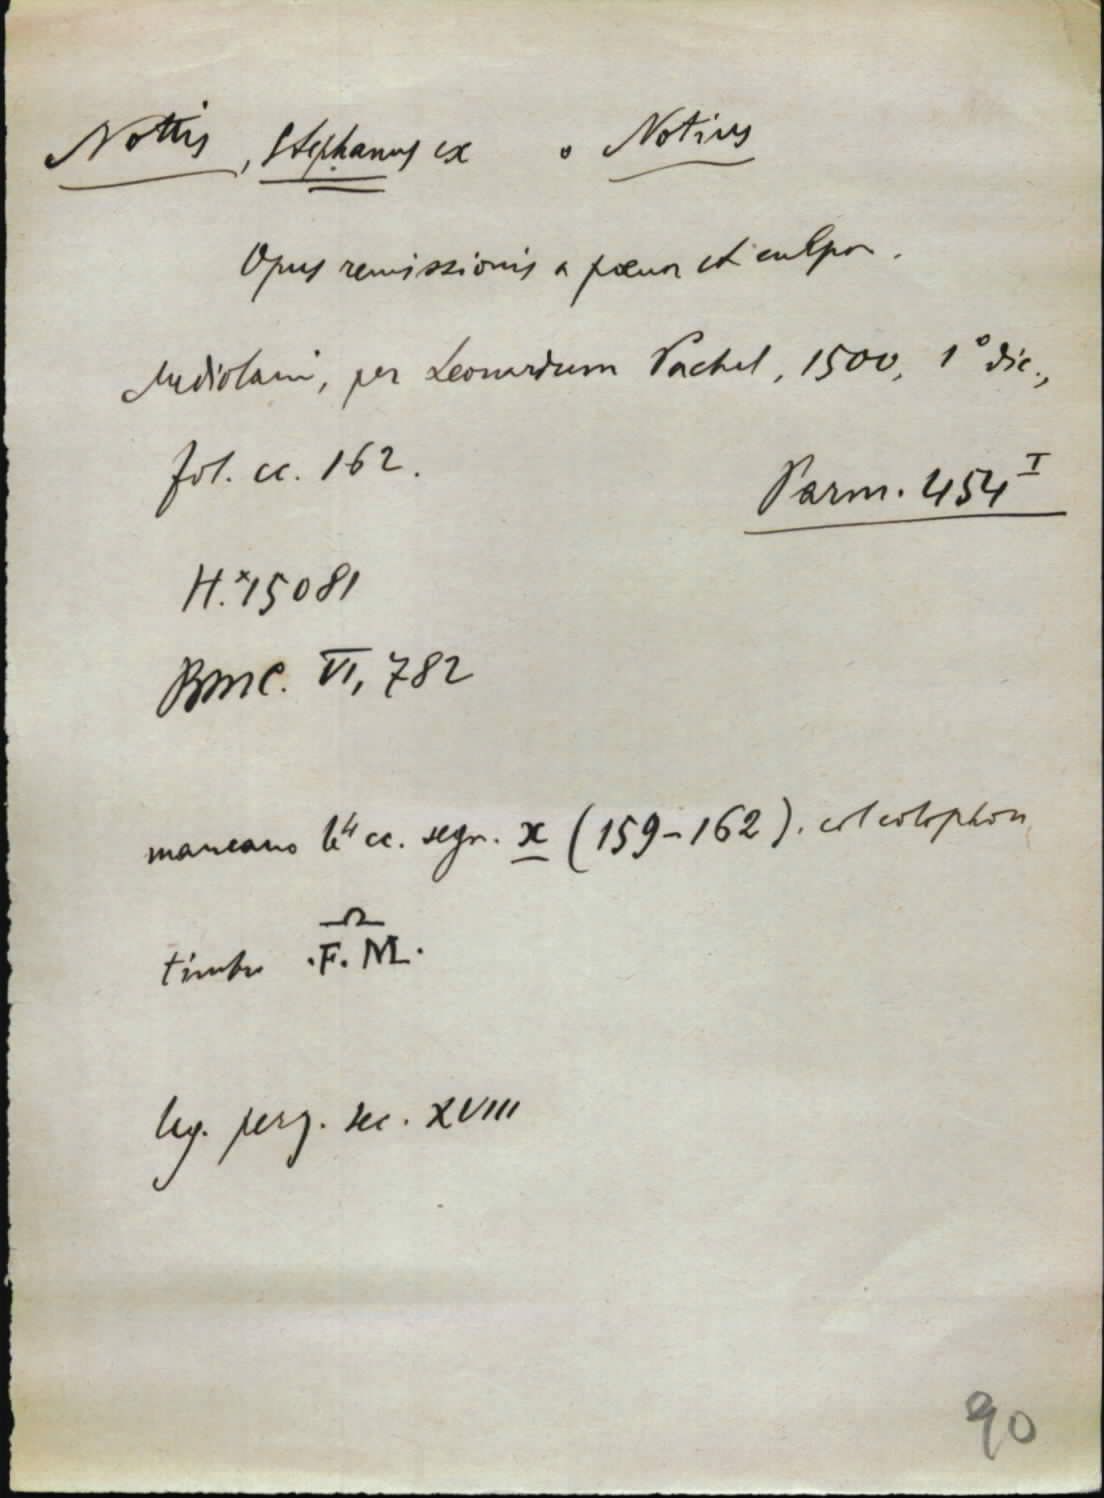 Nottis, Stephanus ex o Notius
Opus remissionis a poena et culpa.
Mediolani, per Leonardum Pachel, 1500, 1° dic.,
fol. cc. 162.
Parm. 454 I
H.*15081
BMC. VI, 782
mancano le 4 cc. segn. x (159-162). col colophon
timbro .F.M.
leg. perg. sec. XVIII
90